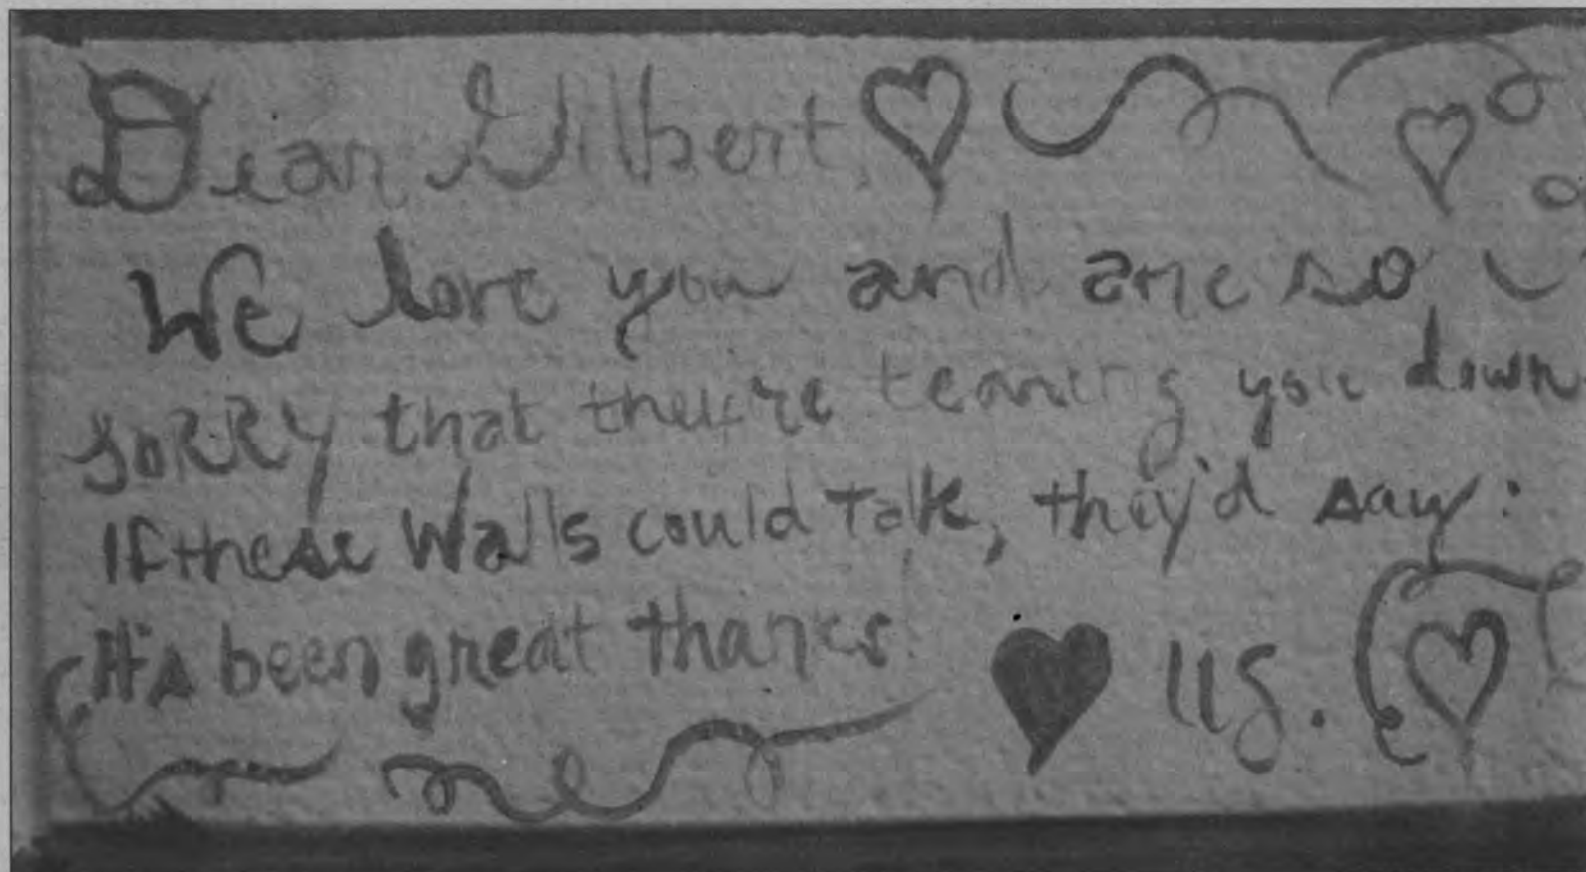 Dear Gilbert,
We love you and are so
SORRY that they're tearing you down
If these Walls could talk, they'd say:
It's been great thanks!
us.